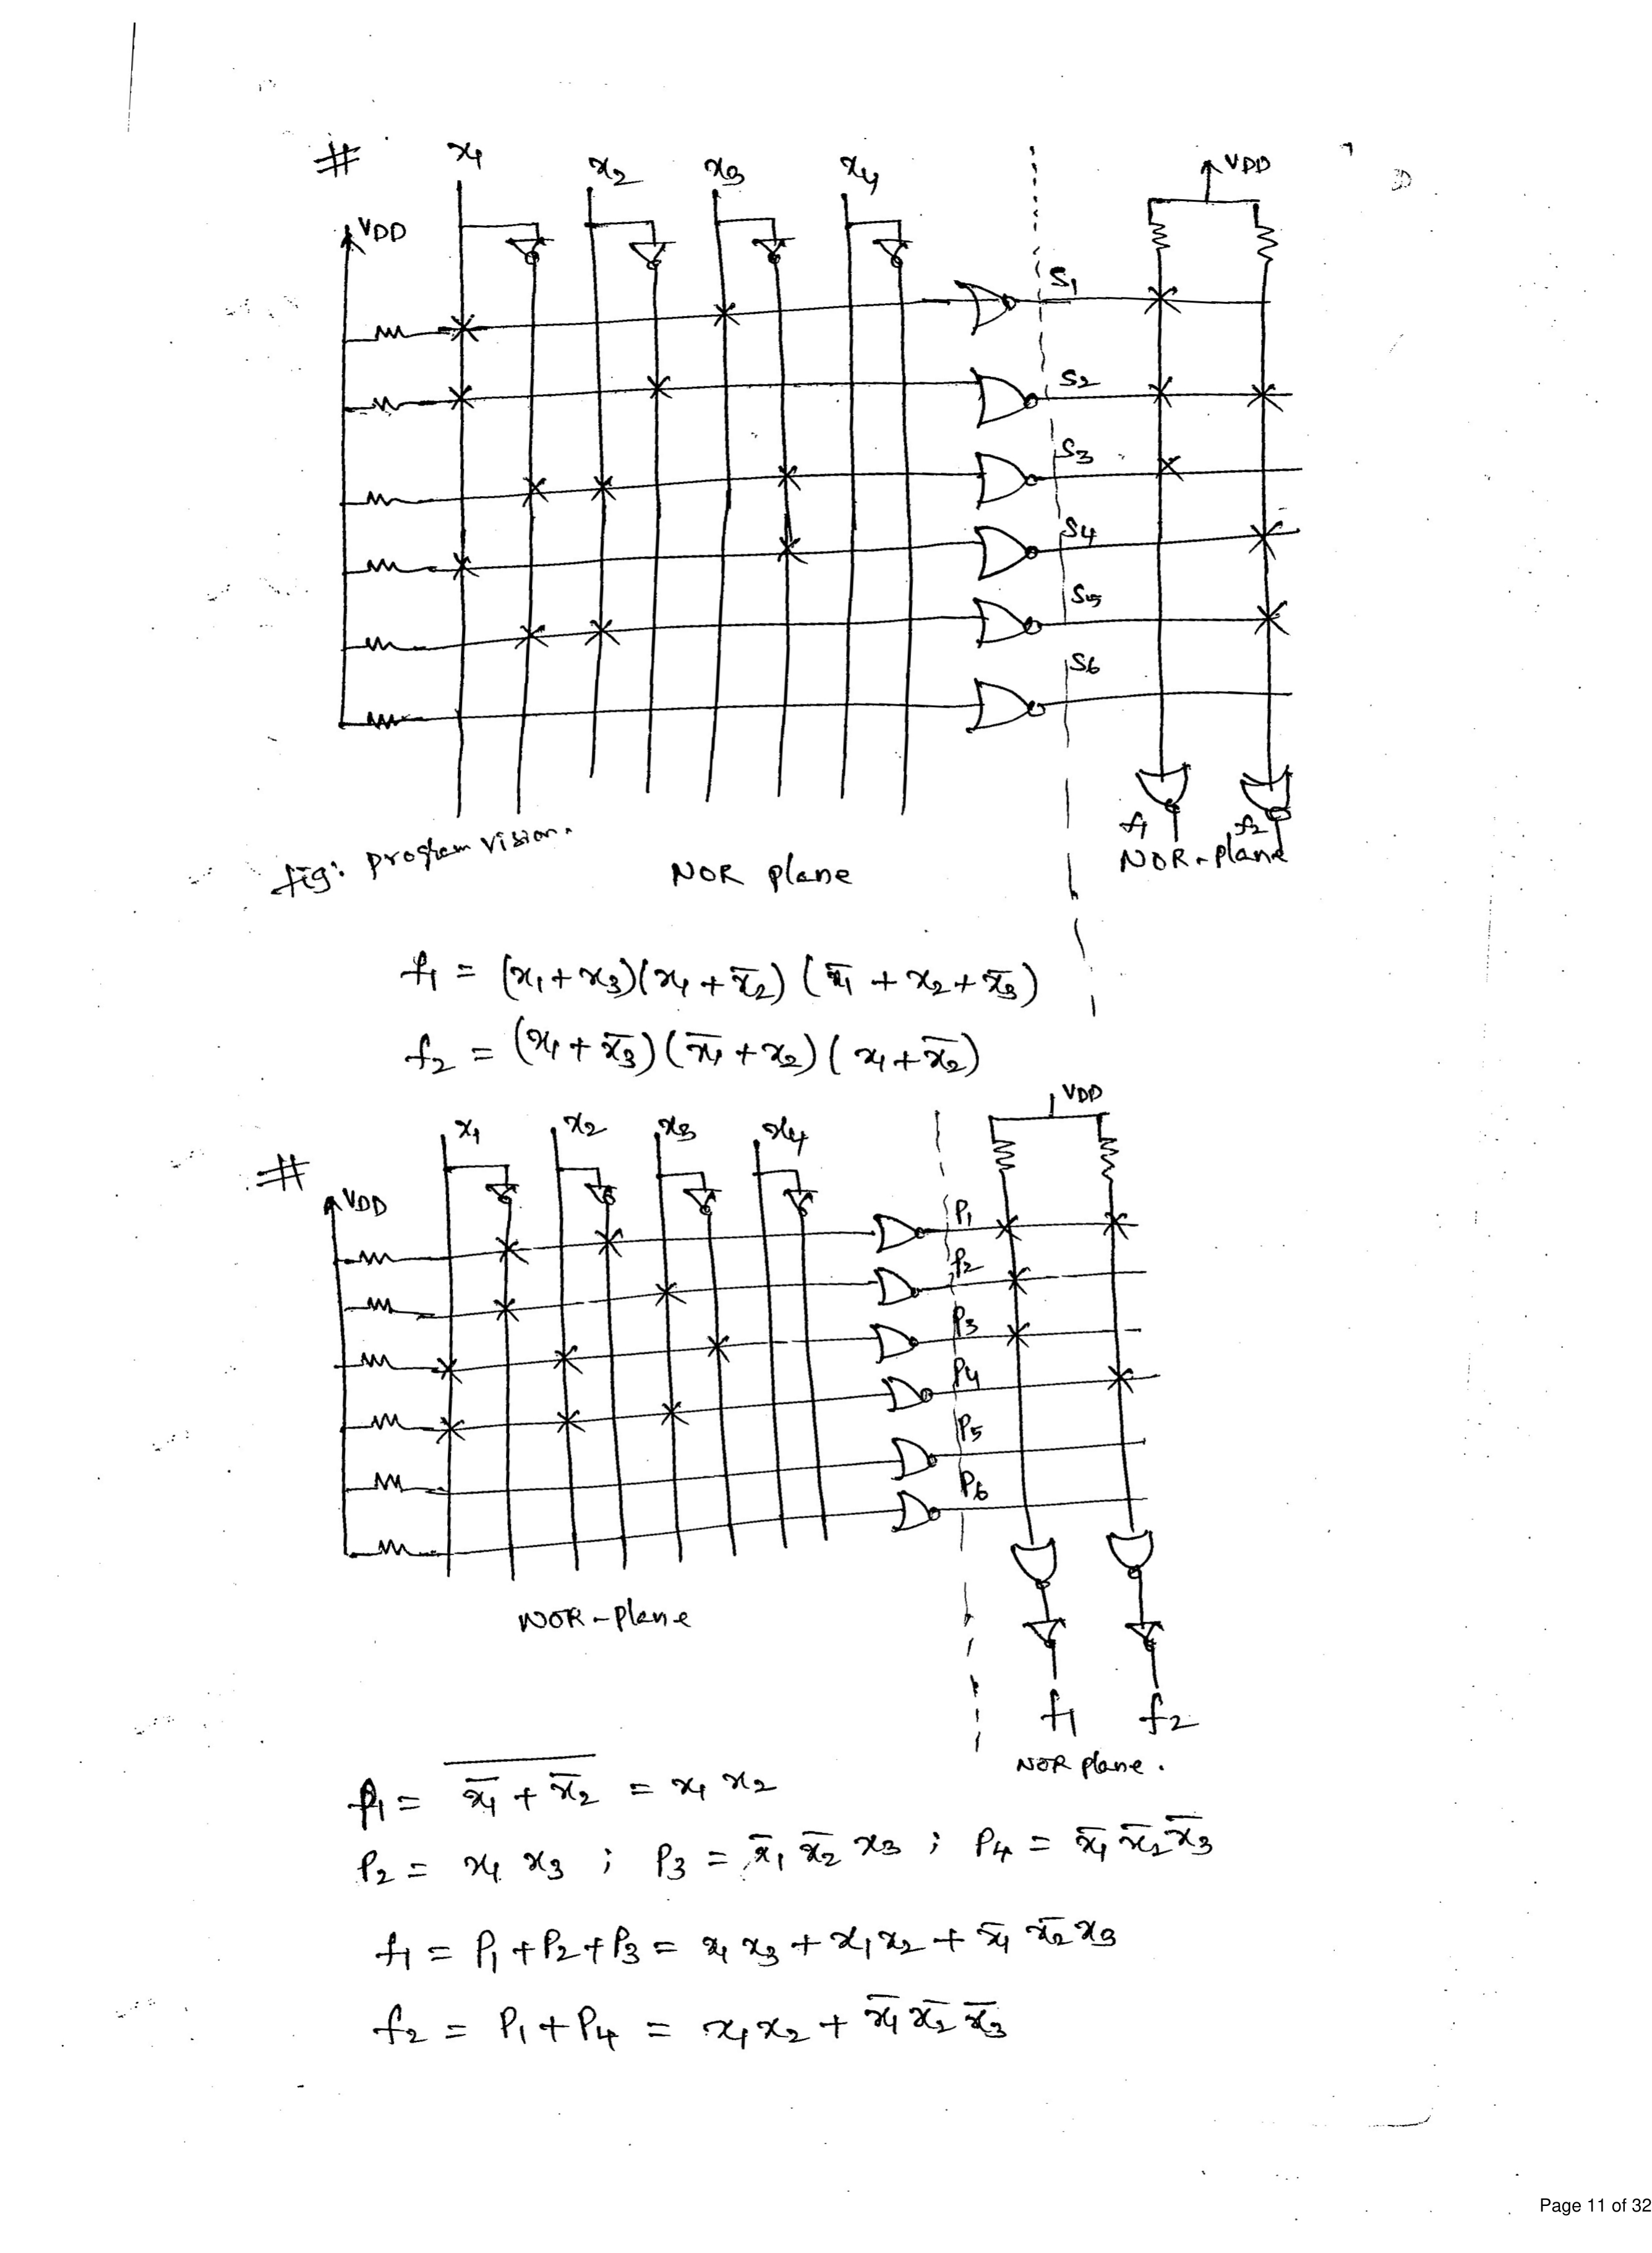 #
x₁ x₂ x₃ x₄
VDD
VDD
S₁
S₂
S₃
S₄
S₅
S₆
f₁ f₂
fig: program vision.
NOR plane
NOR-plane
f₁ = (x₁ + x₃)(x₁ + x̄₂)(x̄₁ + x₂ + x̄₃)
f₂ = (x₁ + x̄₃)(x̄₁ + x₂)(x₁ + x̄₂)
#
x₁ x₂ x₃ x₄
VDD
VDD
P₁
P₂
P₃
P₄
P₅
P₆
NOR-plane
f₁ f₂
NOR plane.
P₁ = \overline{x̄₁ + x̄₂} = x₁ x₂
P₂ = x₁ x₃ ; P₃ = x̄₁ x̄₂ x₃ ; P₄ = x̄₁ x̄₂ x̄₃
f₁ = P₁ + P₂ + P₃ = x₁ x₃ + x₁ x₂ + x̄₁ x̄₂ x₃
f₂ = P₁ + P₄ = x₁ x₂ + x̄₁ x̄₂ x̄₃
Page 11 of 32